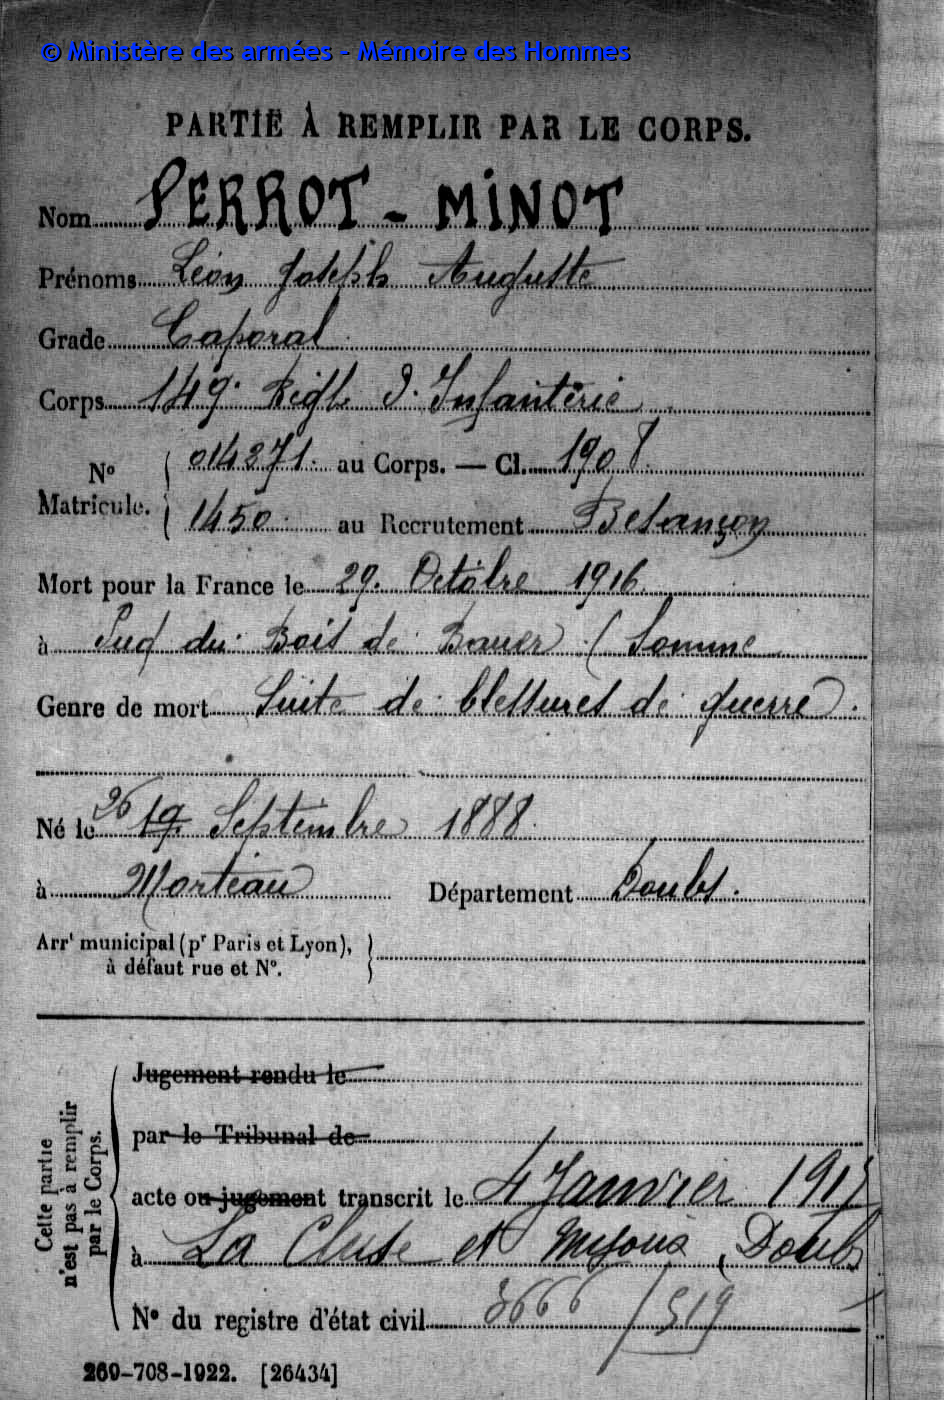 © Ministère des armées - Mémoire des Hommes
PARTIE À REMPLIR PAR LE CORPS.
Nom PERROT - MINOT
Prénoms Léon Joseph Auguste
Grade Caporal
Corps 149e Régt d'Infanterie
No Matricule. 014271 au Corps. — Cl. 1908
1450 au Recrutement Besançon
Mort pour la France le 29 Octobre 1916
à Sud du Bois de Baver (Somme
Genre de mort Suite de blessures de guerre
Né le 26 19 Septembre 1888
à Morteau Département Doubs.
Arrt municipal (pr Paris et Lyon),
à défaut rue et No.
Cette partie n'est pas à remplir par le Corps.
Jugement rendu le
par le Tribunal de
acte ou jugement transcrit le 4 Janvier 1917
à La Cluse et Mijoux, Doubs
No du registre d'état civil 3666 / 519
269-708-1922. [26434]